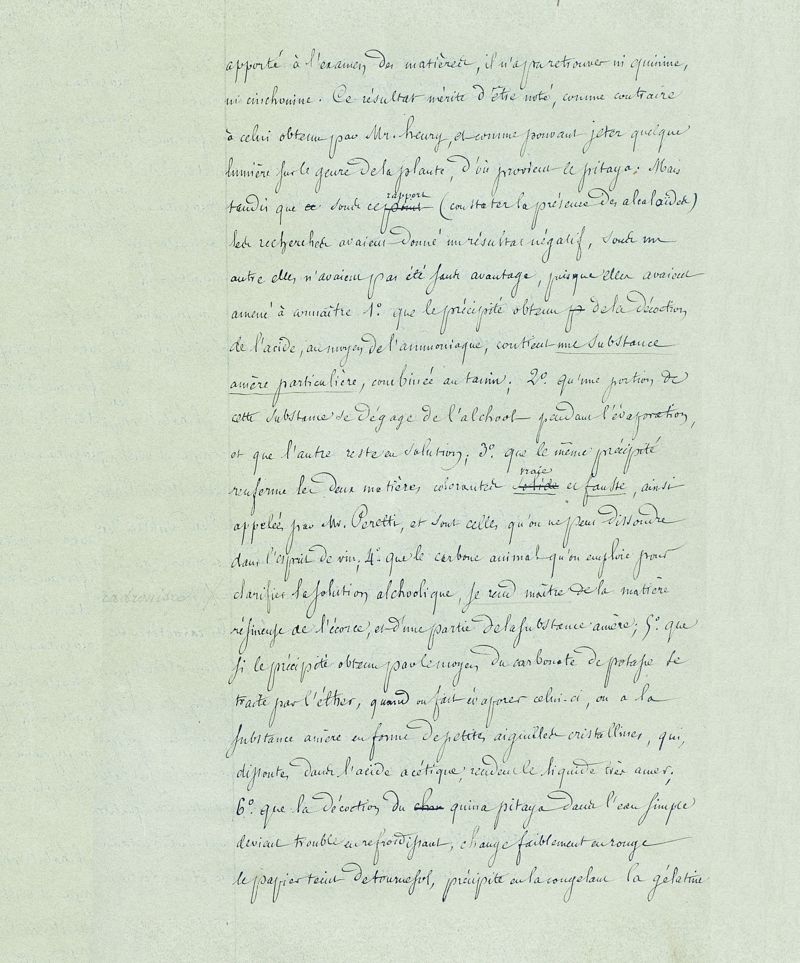 apporté à l'examen des matières, il n'a pu retrouver ni quinine,
ni cinchonine. Ce résultat mérite d'être noté, comme contraire
à celui obtenu par Mr. henry, et comme pouvant jeter quelque
lumière sur le genre de la plante, d'où provient le pitaya. Mais
tandis que ce sous ce point rapport (constater la présence des alcaloïdes)
les recherches avaient donné un résultat négatif, sous un
autre elles n'avaient pas été sans avantage, puisque elles avaient
amené à connaître 1.º que le précipité obtenu p de la décoction
de l'acide, au moyen de l'ammoniaque, contient une substance
amère particulière, combinée au tanin; 2.º qu'une portion de
cette substance se dégage de l'alchool pendant l'évaporation,
et que l'autre reste en solution; 3.º que le même précipité
renferme les deux matières colorantes solide vraie et fausse, ainsi
appelées par Mr. Peretti, et sont celles qu'on ne peut dissoudre
dans l'esprit de vin; 4.º que le carbone animal qu'on emploie pour
clarifier la solution alchoolique, se rend maître de la matière
résineuse de l'écorce, et d'une partie de la substance amère; 5.º que
si le précipité obtenu par le moyen du carbonate de potasse se
traite par l'éther, quand on fait évaporer celui-ci, on a la
substance amère en forme de petites aiguilles cristallines, qui,
dissoutes dans l'acide acétique, rendent le liquide très amer.
6.º que la décoction du quina pitaya dans l'eau simple
devient trouble en refroidissant, change faiblement en rouge
le papier teint de tournesol, précipite en la congelant la gélatine